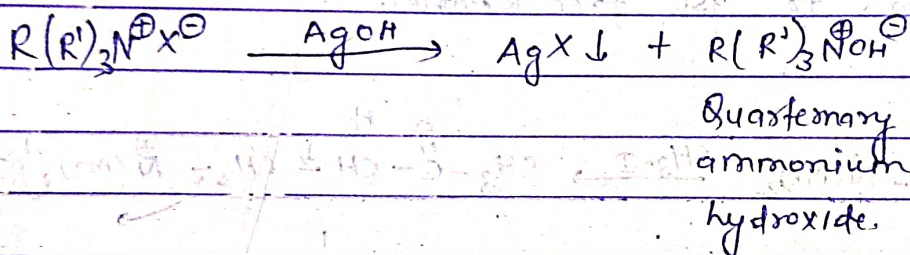 R(R')₃N⊕X⊖ AgOH → AgX↓ + R(R')₃N⊕OH⊖
Quarternary
ammonium
hydroxide.